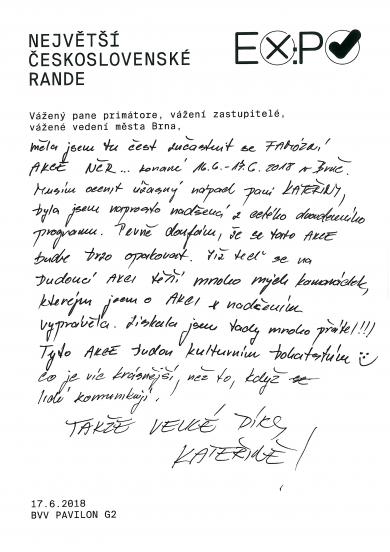 NEJVĚTŠÍ
ČESKOSLOVENSKÉ
RANDE
EX:PO
Vážený pane primátore, vážení zastupitelé,
vážené vedení města Brna,
měla jsem tu čest zúčastnit se FAMÓZNÍ
AKCE NČR... konané 16.6.-17.6.2018 v Brně.
Musím ocenit úžasný nápad paní KATEŘINY,
byla jsem naprosto nadšená z celého dvoudenního
programu. Pevně doufám, že se tato AKCE
bude brzo opakovat. Již teď se na
budoucí AKCI těší mnoho mých kamarádek,
kterejm jsem o AKCI s nadšením
vyprávěla. Získala jsem tady mnoho přátel!!!
Tyto AKCE budou kulturním bohatstvím
Co je víc krásnější, než to, když se
lidi komunikují.
TAKŽE VELKÉ DÍKY
KATEŘINĚ!
17.6.2018
BVV PAVILON G2